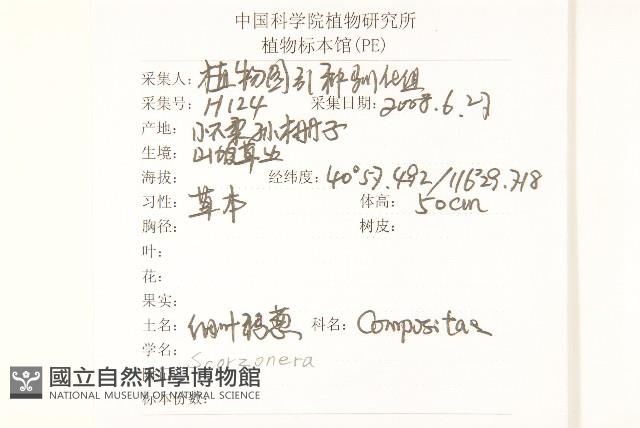 中国科学院植物研究所
植物标本馆(PE)
采集人: 植物园引种驯化组
采集号: H124 采集日期: 2008.6.27
产地: 怀柔孙栅子
生境: 山坡草丛
海拔: 经纬度: 40°57.492/116°29.718
习性: 草本 体高: 50cm
胸径: 树皮:
叶:
花:
果实:
土名: 细叶鸦葱 科名: Compositae
学名: Scorzonera
國立自然科學博物館
NATIONAL MUSEUM OF NATURAL SCIENCE
标本份数: